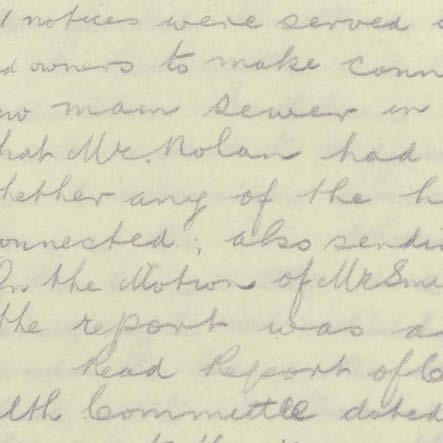 notices were served
owners to make conn
main sewer in
hat Mr. Nolan had
hether any of the h
onnected; also sendi
On the Motion of Mr Sm
the report was a
Read Report of
lth Committee dated